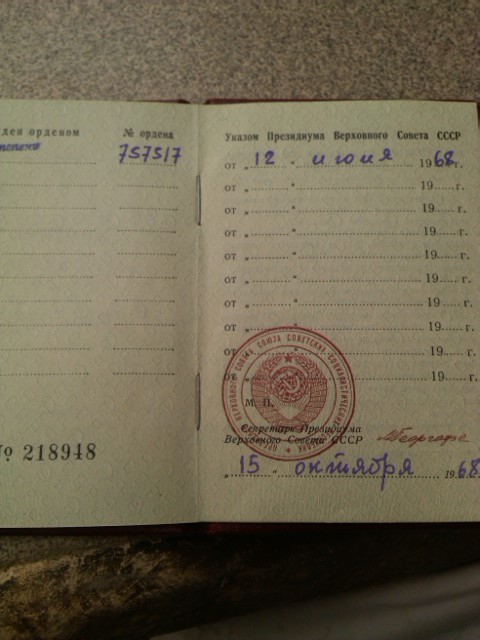 ден орденом
№ ордена
степени
757517
№ 218948
Указом Президиума Верховного Совета СССР
от „ 12 " июля 1968 г.
от „ " 19 г.
от „ " 19 г.
от „ " 19 г.
от „ " 19 г.
от „ " 19 г.
от „ " 19 г.
от „ " 19 г.
от „ " 19 г.
от „ " 19 г.
М. П.
Секретарь Президиума
Верховного Совета СССР
„ 15 " октября 1968
ВЕРХОВНОГО СОВЕТА СОЮЗА СОВЕТСКИХ СОЦИАЛИСТИЧЕСКИХ